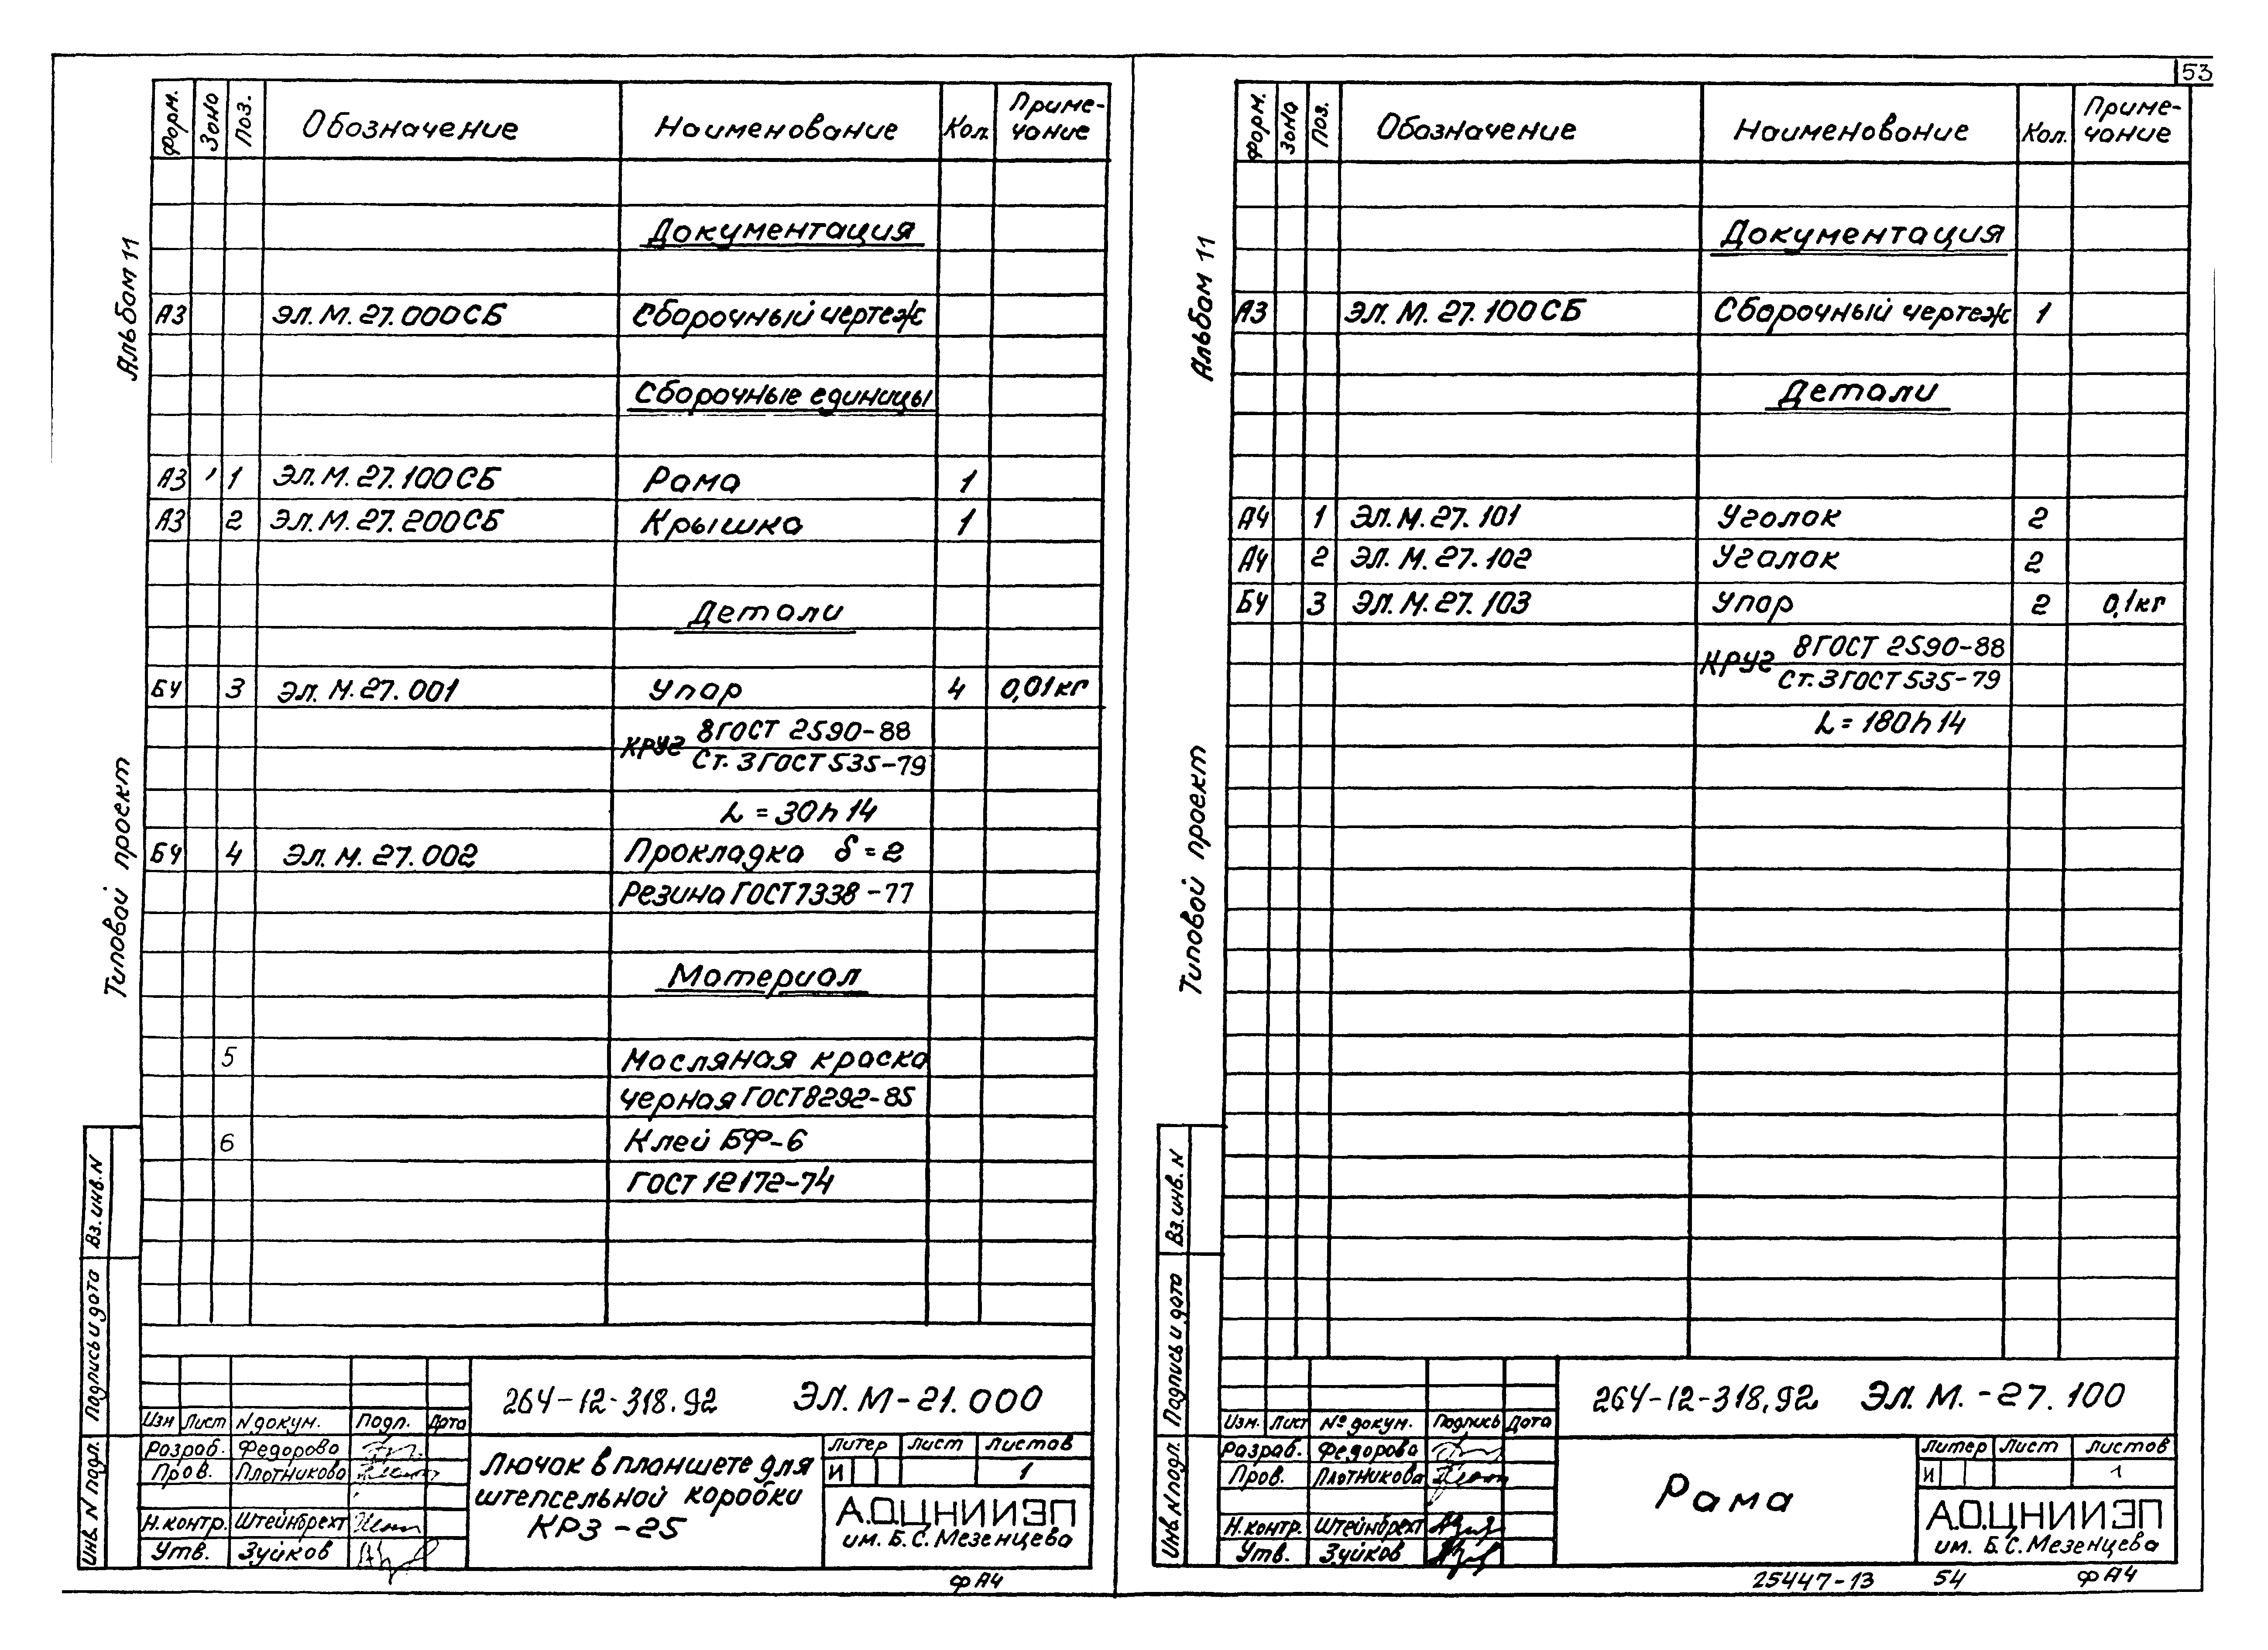 53
Альбом 11
Типовой проект
Форм. Зона Поз. Обозначение Наименование Кол. Приме-
чание
Документация
А3 ЭЛ.М.27.000СБ Сборочный чертеж
Сборочные единицы
А3 1 ЭЛ.М.27.100СБ Рама 1
А3 2 ЭЛ.М.27.200СБ Крышка 1
Детали
БЧ 3 ЭЛ.М.27.001 Упор 4 0,01кг
Круг 8 ГОСТ 2590-88
Ст.3 ГОСТ 535-79
L = 30h14
БЧ 4 ЭЛ.М.27.002 Прокладка δ=2
Резина ГОСТ 7338-77
Материал
5 Масляная краска
черная ГОСТ 8292-85
6 Клей БФ-6
ГОСТ 12172-74
Вз.инв.N
Подпись и дата
Инв.N подл.
264-12-318.92 ЭЛ.М-21.000
Изм Лист N докум. Подл. Дата
Разраб. Федорова
Пров. Плотникова
Н.контр. Штейнбрехт
Утв. Зуйков
Лючок в планшете для
штепсельной коробки
КРЗ-25
Литер Лист Листов
И 1
А.О.ЦНИИЭП
им. Б.С.Мезенцева
ФА4
Альбом 11
Типовой проект
Форм. Зона Поз. Обозначение Наименование Кол. Приме-
чание
Документация
А3 ЭЛ.М.27.100СБ Сборочный чертеж 1
Детали
А4 1 ЭЛ.М.27.101 Уголок 2
А4 2 ЭЛ.М.27.102 Уголок 2
БЧ 3 ЭЛ.М.27.103 Упор 2 0,1кг
Круг 8 ГОСТ 2590-88
Ст.3 ГОСТ 535-79
L = 180h14
Вз.инв.N
Подпись и дата
Инв.N подл.
264-12-318.92 ЭЛ.М.-27.100
Изм. Лист № докум. Подпись Дата
Разраб. Федорова
Пров. Плотникова
Н.контр. Штейнбрехт
Утв. Зуйков
Рама
Литер Лист Листов
И 1
А.О.ЦНИИЭП
им. Б.С.Мезенцева
25447-13 54 ФА4